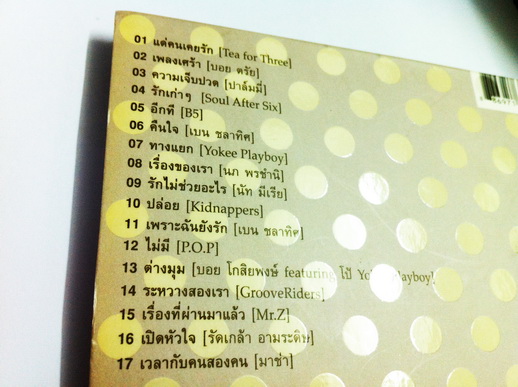 01 แด่คนเคยรัก [Tea for Three]
02 เพลงเศร้า [บอย ตรัย]
03 ความเจ็บปวด [ปาล์มมี่]
04 รักเก่าๆ [Soul After Six]
05 อีกที [B5]
06 คืนใจ [เบน ชลาทิศ]
07 ทางแยก [Yokee Playboy]
08 เรื่องของเรา [นภ พรชำนิ]
09 รักไม่ช่วยอะไร [นัท มีเรีย]
10 ปล่อย [Kidnappers]
11 เพราะฉันยังรัก [เบน ชลาทิศ]
12 ไม่มี [P.O.P]
13 ต่างมุม [บอย โกสิยพงษ์ featuring โป้ Yokee Playboy]
14 ระหว่างสองเรา [GrooveRiders]
15 เรื่องที่ผ่านมาแล้ว [Mr.Z]
16 เปิดหัวใจ [รัดเกล้า อามระดิษ]
17 เวลากับคนสองคน [มาช่า]